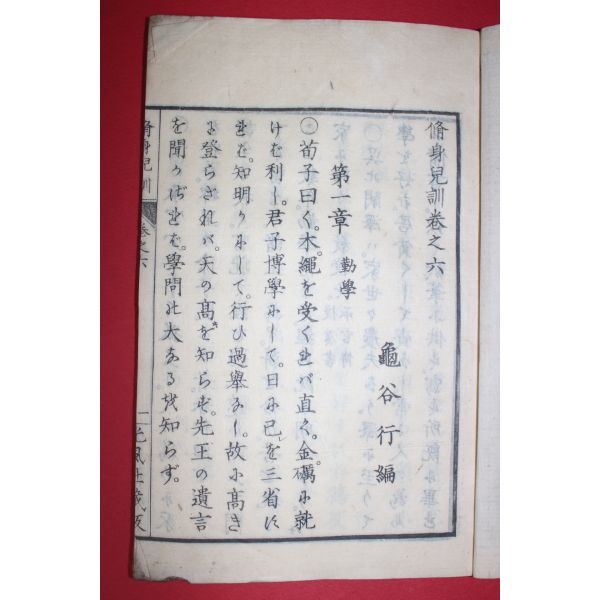 脩身兒訓卷之六
龜谷行編
第一章 勤學
○荀子曰く。木繩を受くれバ直く。金礪に就
けば利し。君子博學にして。日に己を三省す
れば。知明かにして。行ひ過擧なし。故に髙き
に登らざれバ。天の髙きを知らず。先王の遺言
を聞かざれば。學問の大なるを知らず。
脩身兒訓
卷之六
二 光風社藏板